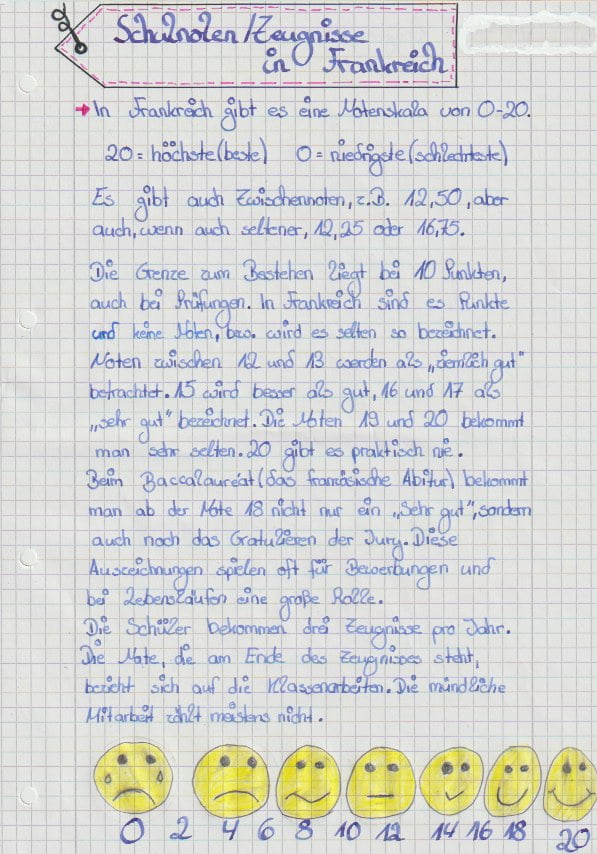 Schulnoten/Zeugnisse
in Frankreich
→ In Frankreich gibt es eine Notenskala von 0-20.
20 = höchste (beste) 0 = niedrigste (schlechteste)
Es gibt auch Zwischennoten, z.B. 12,50, aber
auch, wenn auch seltener, 12,25 oder 16,75.
Die Grenze zum Bestehen liegt bei 10 Punkten,
auch bei Prüfungen. In Frankreich sind es Punkte
und keine Noten, bzw. wird es selten so bezeichnet.
Noten zwischen 12 und 13 werden als „ziemlich gut"
betrachtet. 15 wird besser als gut, 16 und 17 als
„sehr gut" bezeichnet. Die Noten 19 und 20 bekommt
man sehr selten. 20 gibt es praktisch nie.
Beim Baccalauréat (das französische Abitur) bekommt
man ab der Note 18 nicht nur ein „Sehr gut", sondern
auch noch das Gratulieren der Jury. Diese
Auszeichnungen spielen oft für Bewerbungen und
bei Lebensläufen eine große Rolle.
Die Schüler bekommen drei Zeugnisse pro Jahr.
Die Note, die am Ende des Zeugnisses steht,
bezieht sich auf die Klassenarbeiten. Die mündliche
Mitarbeit zählt meistens nicht.
0 2 4 6 8 10 12 14 16 18 20